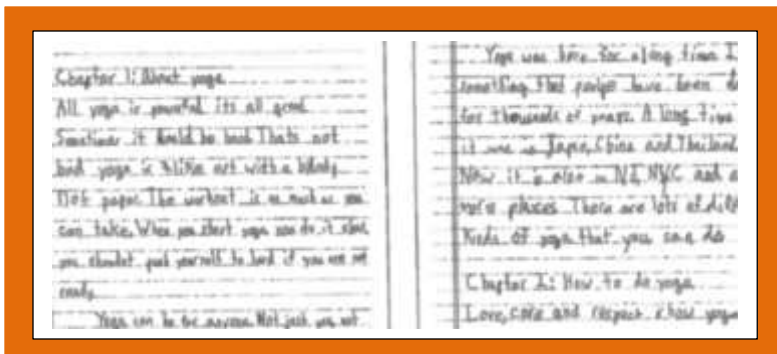 Chapter 1: About yoga
All yoga is powerful its all good.
Sometimes it be hard Thats not
bad yoga is like art with a body
Not paper. The workout is as much as you
can take. When you start yoga you do it slow
you push yourself to hard if you are not
ready.
Yoga can be for anyone. Not just
Yoga was here for a long time I
something that have been
for thousands of years. A long time
it was in Japan, China and Thailand
Now it is also in NJ, NYC and
more places. There are lots of
kinds of yoga that you can do
Chapter 2: How to do yoga
Love, care and respect your